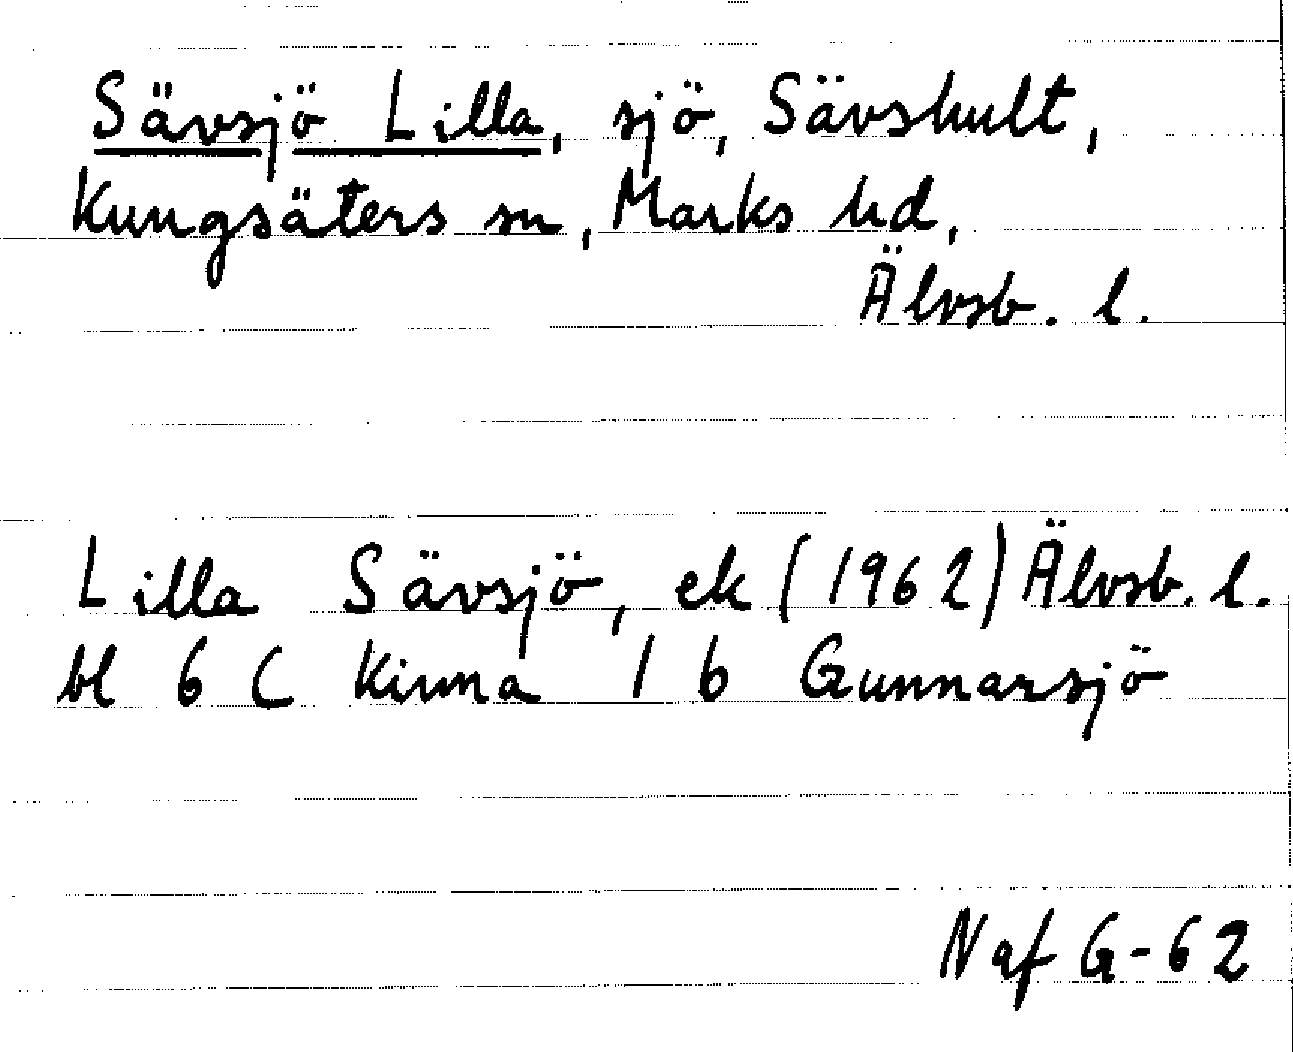 Sävsjö Lilla, sjö, Sävshult,
Kungsäters sn, Marks hd,
Älvsb. l.
Lilla Sävsjö, ek (1962) Älvsb. l.
bl 6 C Kinna 1 b Gunnarsjö
Naf G-62